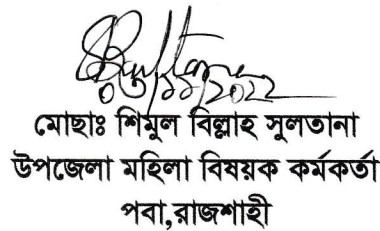 ০৩/১১/২০২২
মোছাঃ শিমুল বিল্লাহ সুলতানা
উপজেলা মহিলা বিষয়ক কর্মকর্তা
পবা,রাজশাহী